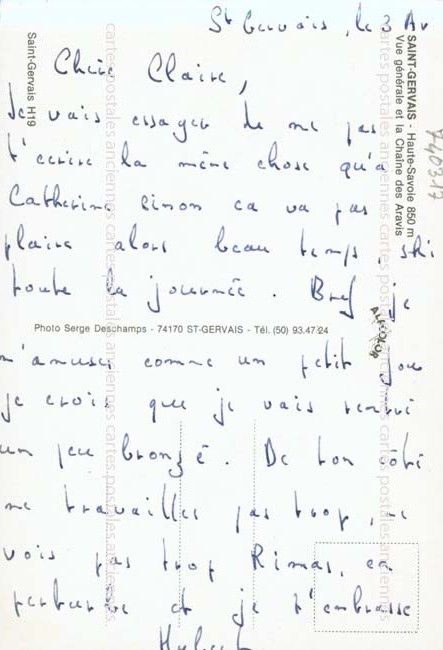 St Gervais, le 3 Av
Chère Claire,
Je vais essayer de ne pas
t'écrire la même chose qu'à
Catherine sinon ca va pas
plaire alors beau temps, ski
toute la journée. Bref je
m'amuse comme un petit fou
je crois que je vais rentrer
un peu bronzé. De ton côté
ne travailles pas trop, ne
vois pas trop Rimas, en
et je t'embrasse
Hubert
SAINT-GERVAIS - Haute-Savoie 850 m
Vue générale et la Chaîne des Aravis
Saint-Gervais H19
740317
Photo Serge Deschamps - 74170 ST-GERVAIS - Tél. (50) 93.47.24
cartes postales anciennes cartes postales anciennes cartes postales anciennes
cartes postales anciennes cartes postales anciennes cartes postales anciennes